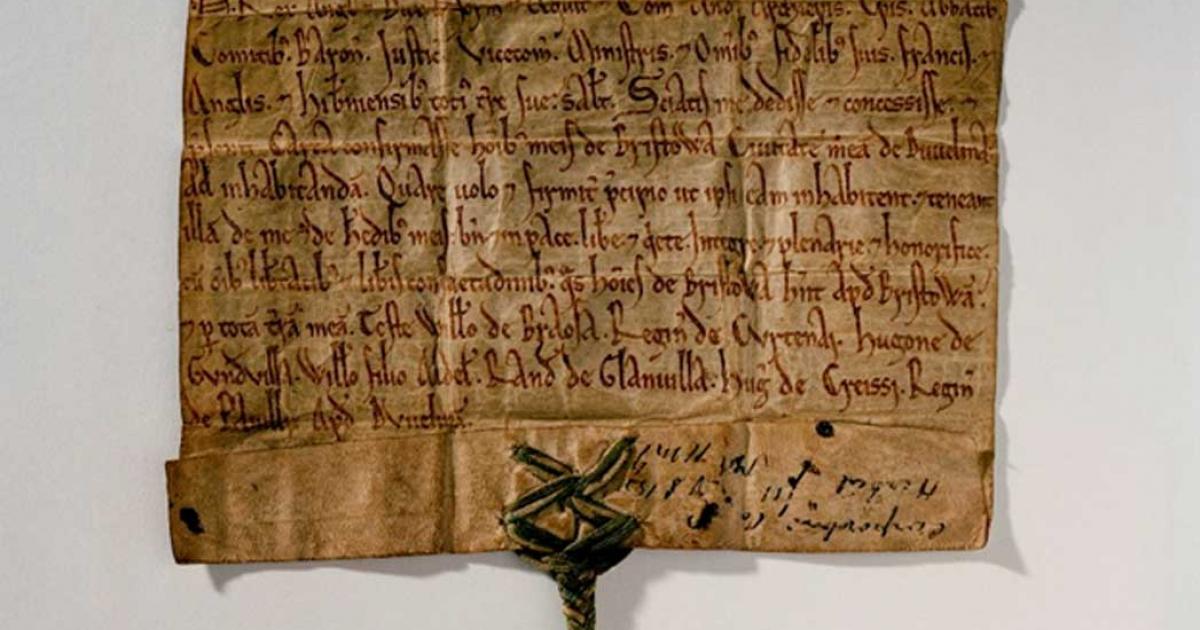 H. Rex Angl. ⁊ Dux Norm̄ ⁊ Aquit̄ ⁊ Com̄ And̄. Archiep̄is. Ep̄is. Abbatib⁹
Comitib⁹. Baron̄. Justic̄. Vicecom̄. Ministris. ⁊ Om̄ib⁹ fidelib⁹ suis. francis. ⁊
Anglis. ⁊ hib̄niensib⁹ toti⁹ t̄re sue: sałt. Sciatis me dedisse ⁊ concessisse. ⁊
p̄senti Carta confirmasse hoīb⁹ meis de Bristowa Ciuitatē meā de Duuelina.
Ad inhabitandā. Quare uolo ⁊ firmit̄ p̄cipio ut ipsi eam inhabitent. ⁊ teneant
illā de me ⁊ de h̄edib⁹ meis. bn̄ ⁊ in pace. lib̄e ⁊ q̇ete. Integre ⁊ plenarie ⁊ honorifice.
cū oīb⁹ lib̄tatib⁹ ⁊ lib̄is consuetudinib⁹. q̄s hoīes de Bristowa hn̄t Apd̄ Bristowā.
⁊ ꝑ totā t̄rā meā. Teste Willo de Braosa. Regin̄ de Curtenai. hugone de
Gundvilla. Willo filio Aldel̄. Rand̄ de Glanuilla. huḡ de Creissi. Regin̄
de Apd̄